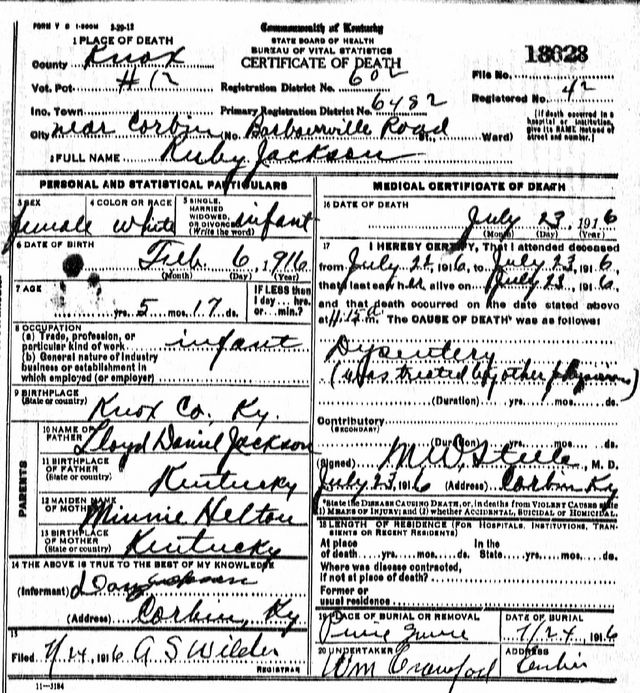 FORM V S 1-500M 3-20-12
Commonwealth of Kentucky
STATE BOARD OF HEALTH
BUREAU OF VITAL STATISTICS
CERTIFICATE OF DEATH
18628
1 PLACE OF DEATH
County Knox
Vot. Pct #12
Registration District No. 602
File No.
Registered No. 42
Inc. Town
Primary Registration District No. 6482
City near Corbin No. Barbourville Road St., Ward)
[If death occurred in a hospital or institution, give its NAME instead of street and number.]
2 FULL NAME Ruby Jackson
PERSONAL AND STATISTICAL PARTICULARS
3 SEX female
4 COLOR OR RACE White
5 SINGLE, MARRIED WIDOWED, OR DIVORCED (Write the word) infant
6 DATE OF BIRTH Feb. 6, 1916
(Month) (Day) (Year)
7 AGE yrs. 5 mos. 17 ds.
IF LESS than 1 day... hrs. or... min.?
8 OCCUPATION
(a) Trade, profession, or particular kind of work infant
(b) General nature of industry business or establishment in which employed (or employer)
9 BIRTHPLACE (State or country) Knox Co. Ky.
PARENTS
10 NAME OF FATHER Lloyd Daniel Jackson
11 BIRTHPLACE OF FATHER (State or country) Kentucky
12 MAIDEN NAME OF MOTHER Minnie Helton
13 BIRTHPLACE OF MOTHER (State or country) Kentucky
14 THE ABOVE IS TRUE TO THE BEST OF MY KNOWLEDGE
(Informant)
(Address) Corbin, Ky
15
Filed 7/24, 1916 A S Wilder
REGISTRAR
11-3184
MEDICAL CERTIFICATE OF DEATH
16 DATE OF DEATH July 23, 1916
(Month) (Day) (Year)
17 I HEREBY CERTIFY, That I attended deceased
from July 22, 1916, to July 23, 1916,
that I last saw h alive on July 23, 1916,
and that death occurred on the date stated above
at m. The CAUSE OF DEATH* was as follows:
Dysentery
(was treated by other physicians)
(Duration) yrs. mos. ds.
Contributory
(SECONDARY)
(Duration) yrs. mos. ds.
(Signed) M W Steele, M. D.
July 23, 1916 (Address) Corbin Ky
*State the DISEASE CAUSING DEATH, or, in deaths from VIOLENT CAUSES state (1) MEANS OF INJURY; and (2) whether ACCIDENTAL, SUICIDAL OR HOMICIDAL
18 LENGTH OF RESIDENCE (FOR HOSPITALS, INSTITUTIONS, TRANSIENTS OR RECENT RESIDENTS)
At place of death yrs. mos. ds. In the State yrs. mos. ds.
Where was disease contracted, if not at place of death?
Former or usual residence
19 PLACE OF BURIAL OR REMOVAL Pine Grove
DATE OF BURIAL 7/24, 1916
20 UNDERTAKER Wm Crawford
ADDRESS Corbin